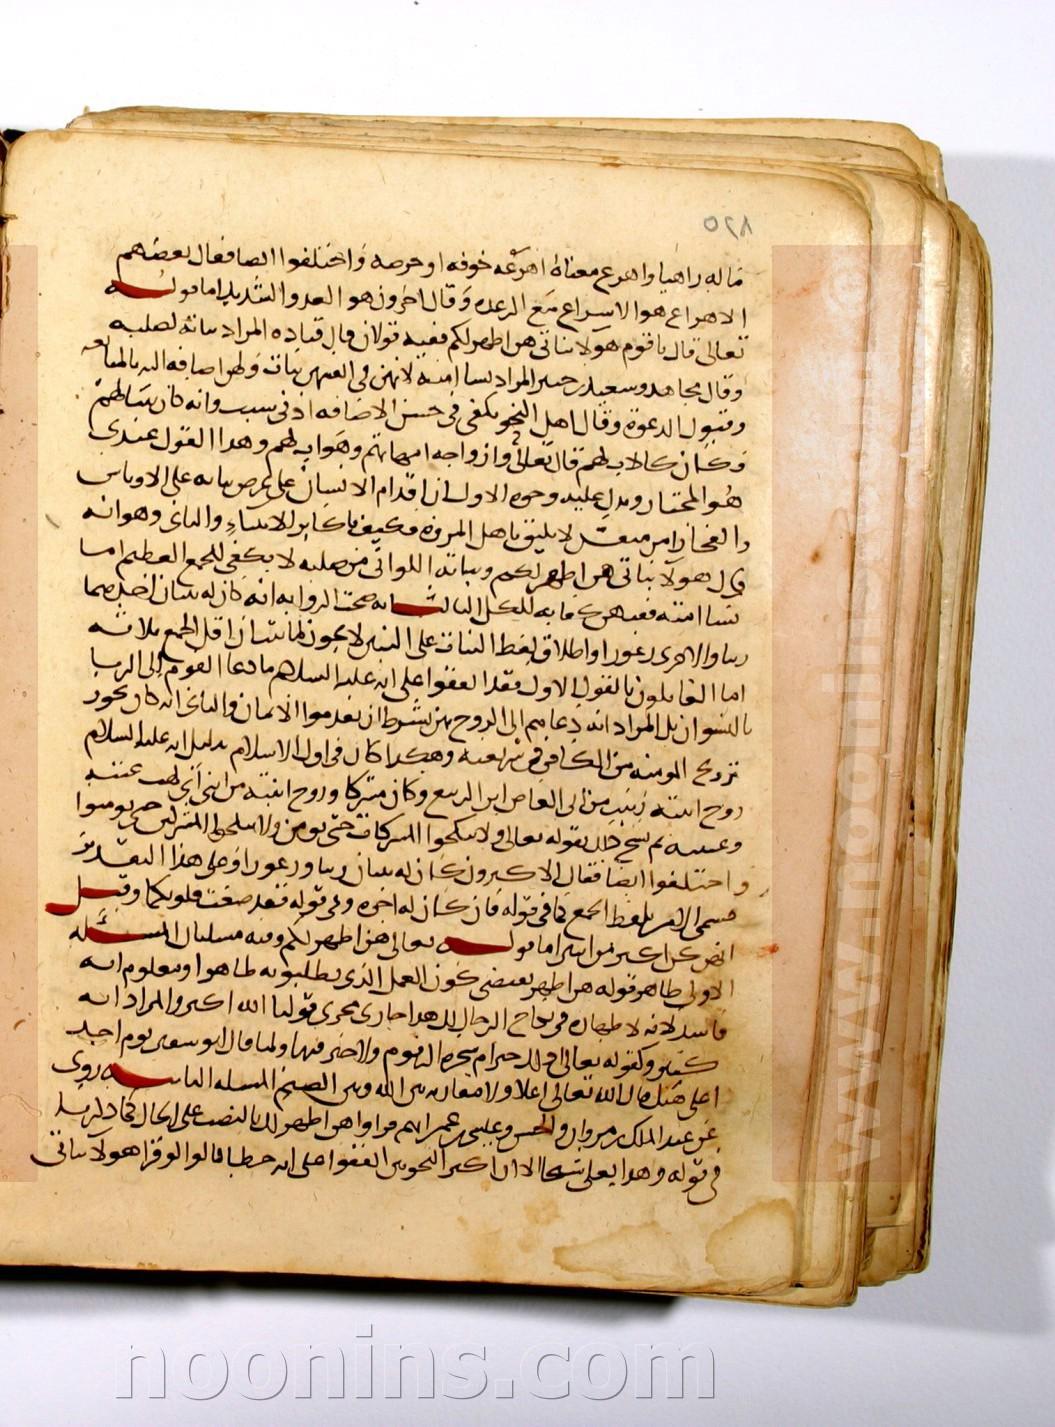 ٨٢٥
ماله راهبا واهرع معناه اهرعه خوفه او حرصه واختلفوا ايضا فقال بعضهم
الاهراع هو الاسراع مع الرعده وقال اخرون هو العدو الشديد اما قوله
تعالى قال ياقوم هولا بناتى هن اطهر لكم ففيه قولان قال قتاده المراد بناته لصلبه
وقال مجاهد وسعيد بن جبير المراد نسا امته لانهن فى انفسهن بنات ولهن اضافه اليه بالمتابعه
وقبول الدعوة وقال اهل النحو يكفى فى حسن الاضافه ادنى سبب وانه كان نبيا لهم
وكان كالاب لهم قال تعالى وازواجه امهاتهم وهو اب لهم وهذا القول عندى
هو المختار ويدل عليه وجوه الاول ان اقدام الانسان على عرض بناته على الاوباش
والفجار امر مستبعد لا يليق باهل المروه فكيف باكابر الانبياء والثانى وهو انه
قال هولا بناتى هن اطهر لكم وبناته اللواتى من صلبه لا تكفى للجمع العظيم اما
نسا امته ففيهن كفايه للكل الثالث انه صحت الروايه انه كان له بنتان احدهما
زنتا والاخرى زعورا واطلاق لفظ البنات على البنتين لا يجوز لما ثبت ان اقل الجمع ثلاثه
اما القايلون بالقول الاول فقد اتفقوا على انه عليه السلام ما دعا القوم الى الزنا
بالنسوان بل المراد انه دعاهم الى التزوج بهن بشرط ان يقدموا الايمان والثانى انه كان يجوز
تزويج المومنه من الكافر فى شريعته وهكذا كان فى اول الاسلام بدليل انه عليه السلام
زوج ابنته زينب من ابى العاص ابن الربيع وكان مشركا وزوج ابنته من ابنى ابى لهب عتبه
وعتيبه ثم نسخ ذلك بقوله تعالى ولا تنكحوا المشركات حتى يومن ولا تنكحوا المشركين حتى يومنوا
واختلفوا ايضا فقال الاكثرون كان له بنتان زنتا وزعورا وعلى هذا التقدير
فسمى الاثنين بلفظ الجمع كما فى قوله فان كان له اخوه وفى قوله فقد صغت قلوبكما وقيل
انهن كن اكثر من اثنين اما قوله تعالى هن اطهر لكم ففيه مسئلتان المسئله
الاولى ظاهر قوله هن اطهر يقتضى كون العمل الذى يطلبونه طاهرا ومعلوم انه
فاسد لانه لا طهاره فى نكاح الرجال بل هذا جارى مجرى قولنا الله اكبر والمراد انه
كبير وكقوله تعالى اذلك خير ام شجره الزقوم ولا خير فيها ولما قال ابو سفين يوم احد
اعل هبل قال الله تعالى اعلا ولا مقاربه بين الله وبين الصنم المسله الثانيه روى
عن عبد الملك بن مروان والحسن وعيسى بن عمر انهم قراوا هن اطهر لكم بالنصب على الحال كما ذكرنا
فى قوله وهذا بعلى شيخا الا ان اكثر النحويين اتفقوا على انه خطا قالوا لو قرا هولا بناتى
www.noonins.com
noonins.com